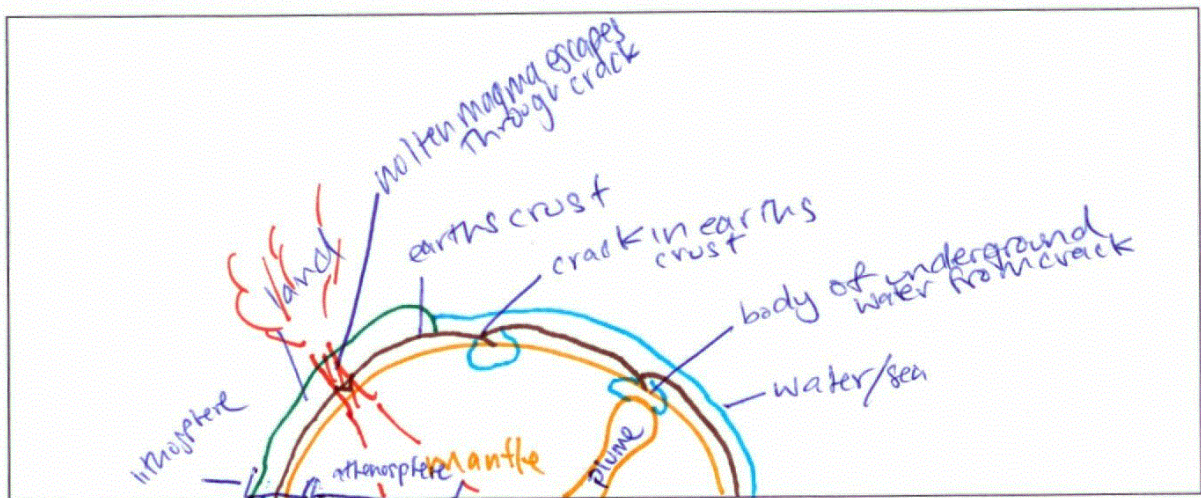 molten magma escapes
through crack
land
earths crust
crack in earths
crust
body of underground
water from crack
water/sea
lithosphere
athenosphere
mantle
plume